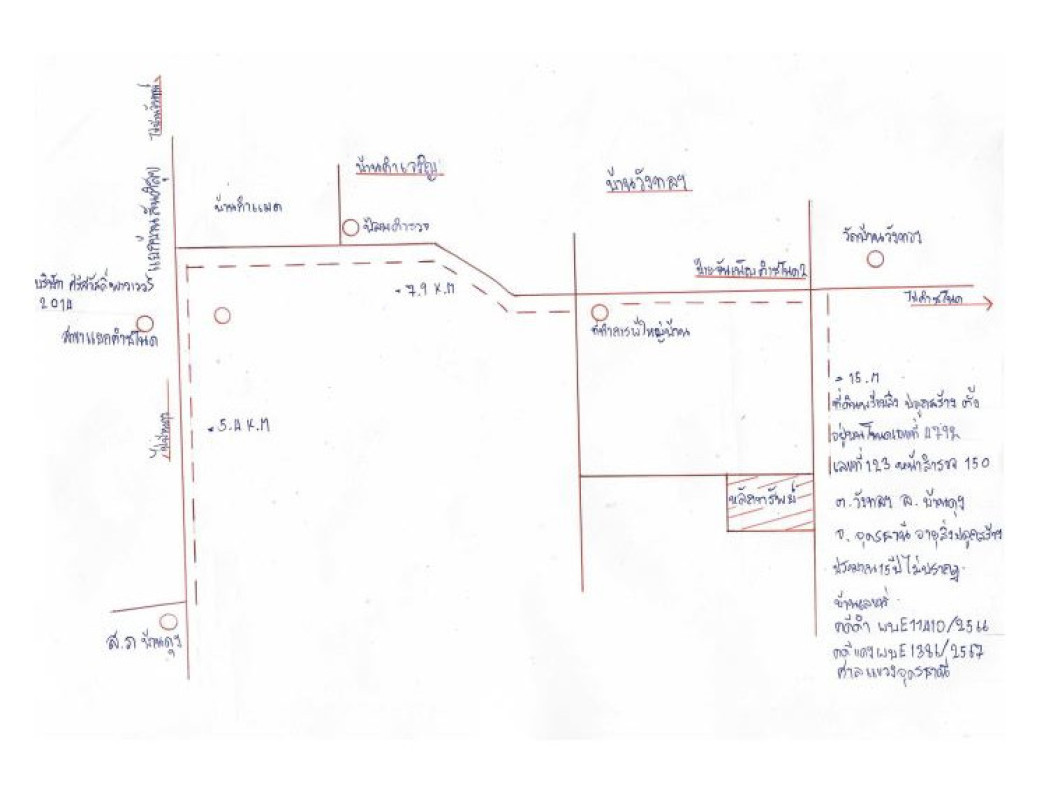 ไปบ้านจันทน์
แยกบ้านสันติสุข
บ้านคำเจริญ
บ้านคำแมด
ป้อมตำรวจ
บ้านวังทอง
วัดบ้านวังทอง
ป้ายจันเพ็ญคำชะโนด2
ไปคำชะโนด
บริษัท ศรีสวัสดิ์พาวเวอร์
2014
สาขาแยกคำชะโนด
= 7.9 K.M
ที่ทำการผู้ใหญ่บ้าน
= 5.4 K.M
= 15.M
ที่ดินพร้อมสิ่งปลูกสร้าง ตั้ง
อยู่บนโฉนดเลขที่ 4792
เลขที่ 123 หน้าสำรวจ 150
ต. วังทอง อ. บ้านดุง
จ. อุดรธานี อายุสิ่งปลูกสร้าง
ประมาณ 15 ปี ไม่ปรากฏ
บ้านเลขที่
คดีดำ ผบE11410/2566
คดีแดง ผบE1386/2567
ศาลแขวงอุดรธานี
หลักทรัพย์
ส.ภ บ้านดุง